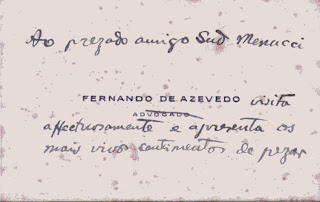 Ao prezado amigo Sud Menucci
FERNANDO DE AZEVEDO visita
ADVOGADO
affectuosamente e apresenta os
mais vivos sentimentos de pezar